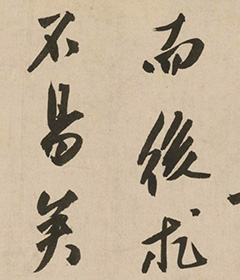 而後求
不易